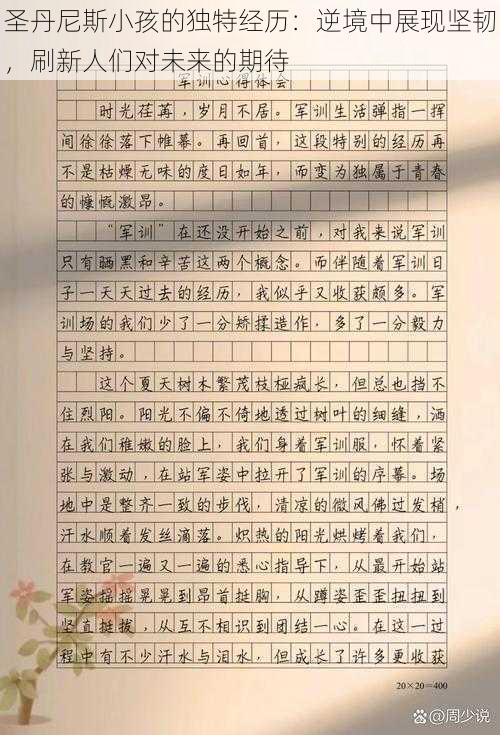 圣丹尼斯小孩的独特经历：逆境中展现坚韧
，刷新人们对未来的期待
军训心得体会
时光荏苒，岁月不居。军训生活弹指一挥
间徐徐落下帷幕。再回首，这段特别的经历再
不是枯燥无味的度日如年，而变为独属于青春
的慷慨激昂。
“军训”在还没开始之前，对我来说军训
只有晒黑和辛苦这两个概念。而伴随着军训日
子一天天过去的经历，我似乎又收获颇多。军
训场的我们少了一分矫揉造作，多了一分毅力
与坚持。
这个夏天树木繁茂枝桠疯长，但总也挡不
住烈阳。阳光不偏不倚地透过树叶的细缝，洒
在我们稚嫩的脸上，我们身着军训服，怀着紧
张与激动，在站军姿中拉开了军训的序幕。场
地中是整齐一致的步伐，清凉的微风佛过发梢，
汗水顺着发丝滴落。炽热的阳光烘烤着我们，
在教官一遍又一遍的悉心指导下，从最开始站
军姿摇摇晃晃到昂首挺胸，从蹲姿歪歪扭扭到
坚直挺拔，从互不相识到团结一心。在这一过
程中有不少汗水与泪水，但成长了许多更收获
20×20=400
百@周少说